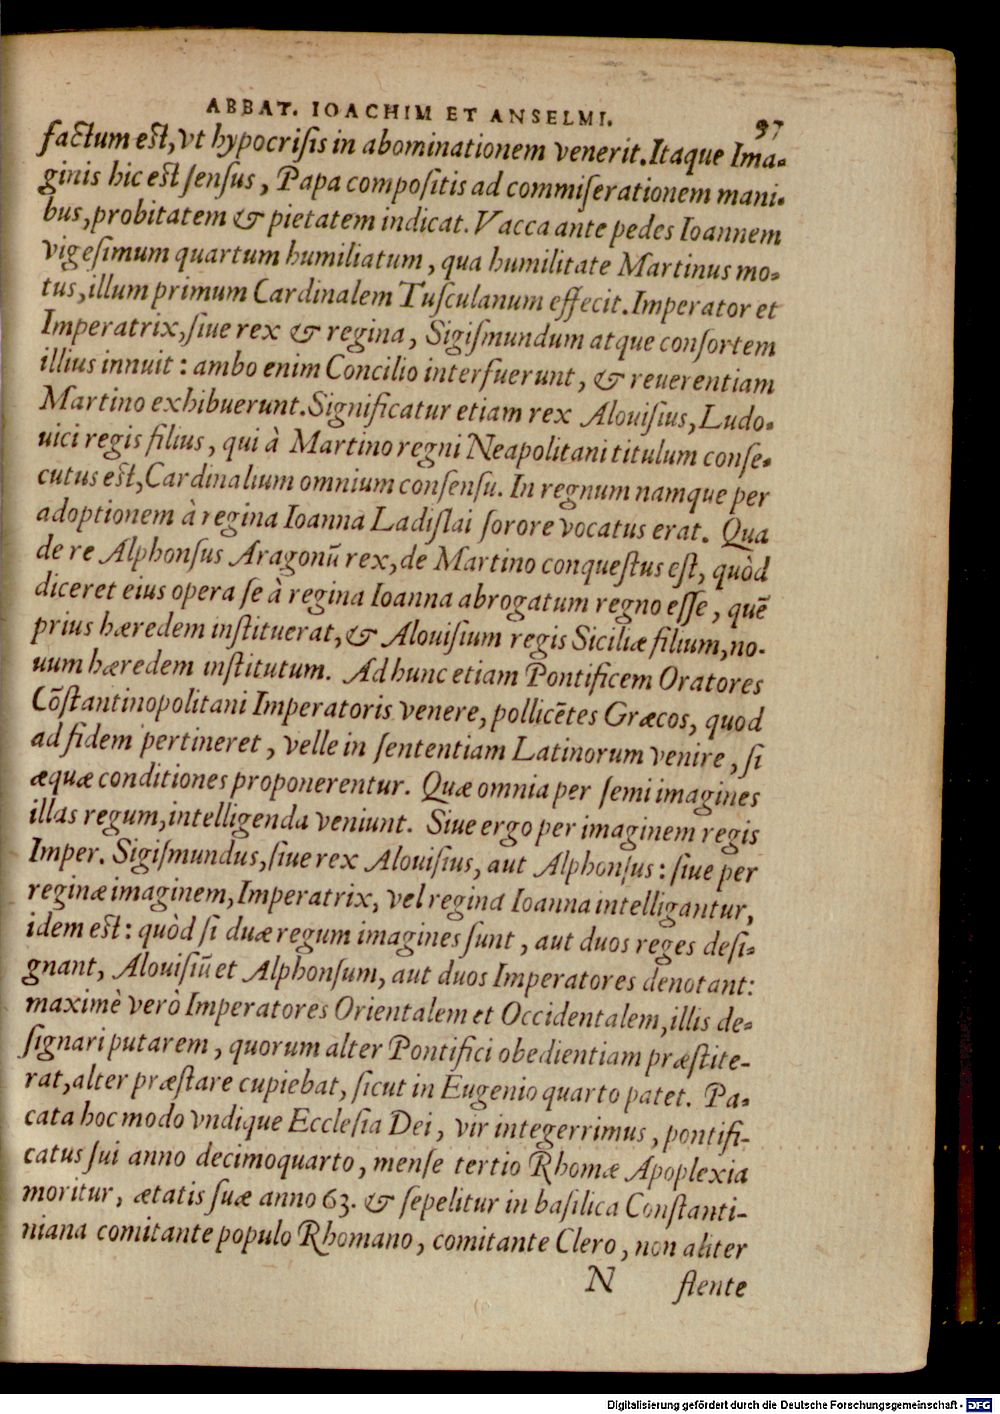 ABBAT. IOACHIM ET ANSELMI. 97
factum est, vt hypocrisis in abominationem venerit. Itaque Ima-
ginis hic est sensus, Papa compositis ad commiserationem mani-
bus, probitatem & pietatem indicat. Vacca ante pedes Ioannem
vigesimum quartum humiliatum, qua humilitate Martinus mo-
tus, illum primum Cardinalem Tusculanum effecit. Imperator et
Imperatrix, siue rex & regina, Sigismundum atque consortem
illius innuit: ambo enim Concilio interfuerunt, & reuerentiam
Martino exhibuerunt. Significatur etiam rex Alouisius, Ludo-
uici regis filius, qui à Martino regni Neapolitani titulum conse-
cutus est, Cardinalium omnium consensu. In regnum namque per
adoptionem à regina Ioanna Ladislai sorore vocatus erat. Qua
de re Alphonsus Aragonũ rex, de Martino conquestus est, quòd
diceret eius opera se à regina Ioanna abrogatum regno esse, quẽ
prius hæredem instituerat, & Alouisium regis Siciliæ filium, no-
uum hæredem institutum. Ad hunc etiam Pontificem Oratores
Cõstantinopolitani Imperatoris venere, pollicẽtes Græcos, quod
ad fidem pertineret, velle in sententiam Latinorum venire, si
æquæ conditiones proponerentur. Quæ omnia per semi imagines
illas regum, intelligenda veniunt. Siue ergo per imaginem regis
Imper. Sigismundus, siue rex Alouisius, aut Alphonsus: siue per
reginæ imaginem, Imperatrix, vel regina Ioanna intelligantur,
idem est: quòd si duæ regum imagines sunt, aut duos reges desi-
gnant, Alouisiũ et Alphonsum, aut duos Imperatores denotant:
maximè verò Imperatores Orientalem et Occidentalem, illis de-
signari putarem, quorum alter Pontifici obedientiam præstite-
rat, alter præstare cupiebat, sicut in Eugenio quarto patet. Pa-
cata hoc modo vndique Ecclesia Dei, vir integerrimus, pontifi-
catus sui anno decimoquarto, mense tertio Rhomæ Apoplexia
moritur, ætatis suæ anno 63. & sepelitur in basilica Constanti-
niana comitante populo Rhomano, comitante Clero, non aliter
N flente
Digitalisierung gefördert durch die Deutsche Forschungsgemeinschaft - DFG